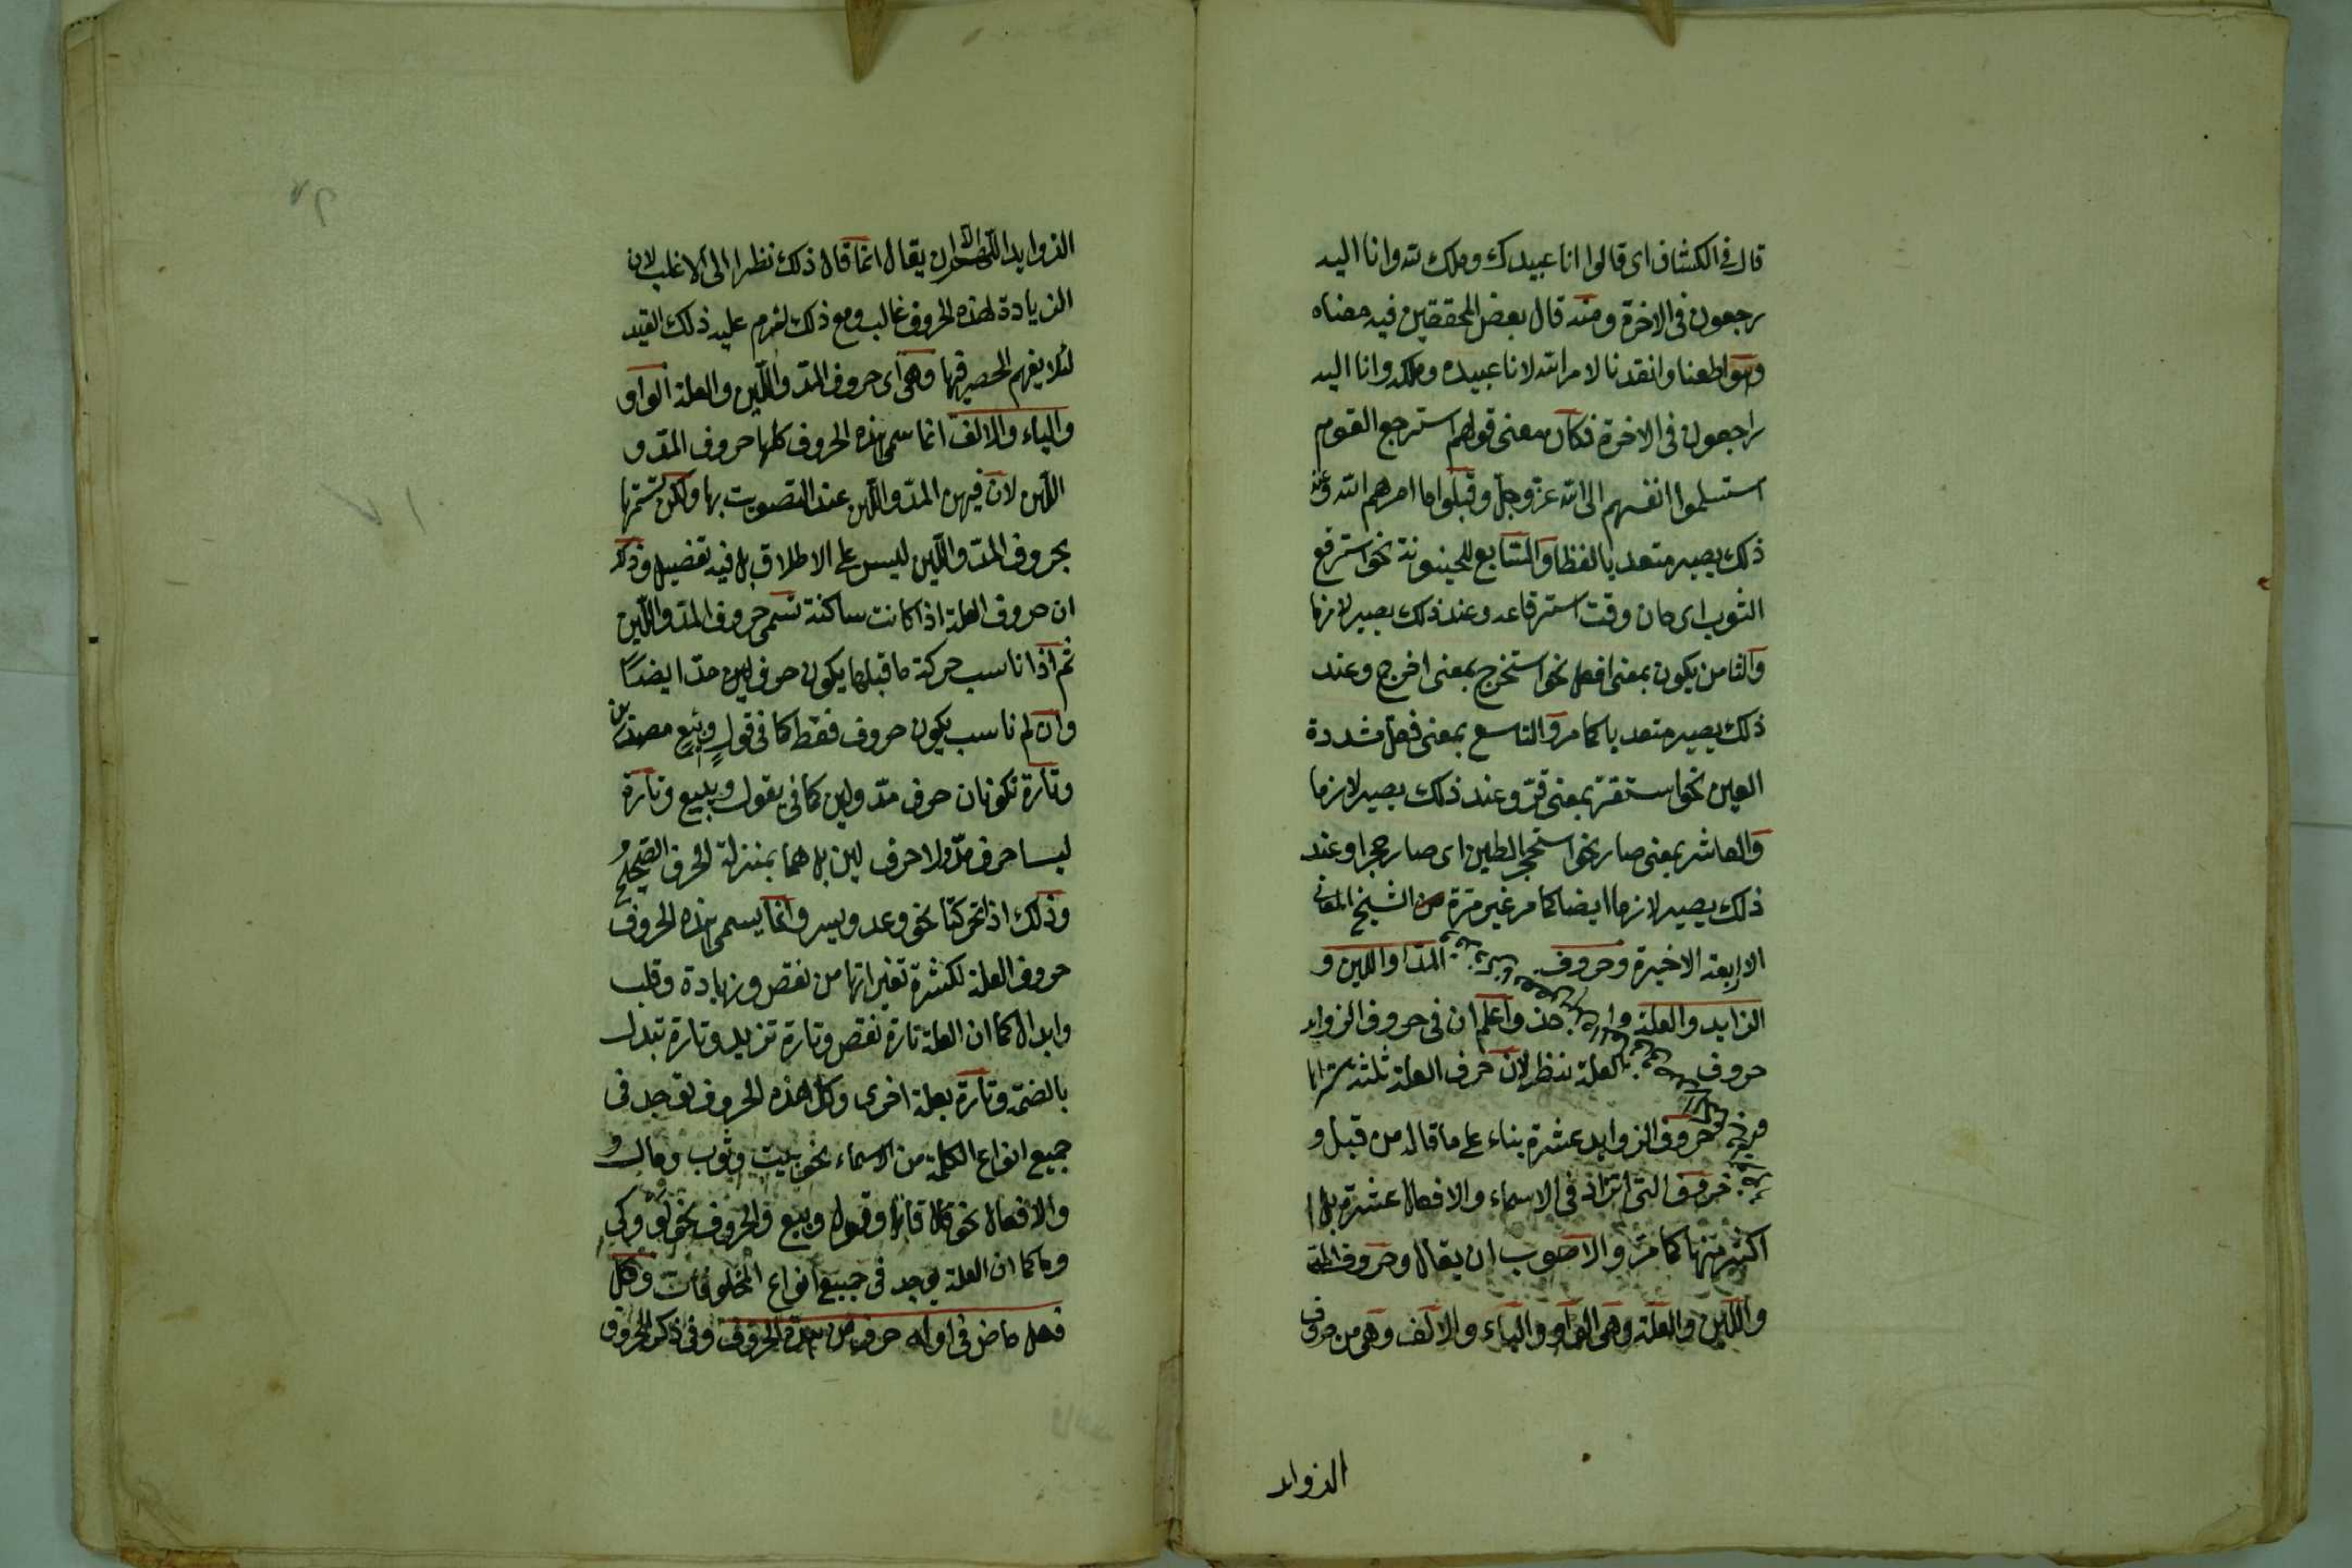 قال فى الكشاف اى قالوا انا عبيدك وملك لله وانا اليه
رجعون فى الاخرة ومنه قال بعض المحققين فيه معناه
اطعنا وانقدنا لامر الله لانا عبيده وملكه وانا اليه
راجعون فى الاخرة فكان معنى قولهم استرجع القوم
استسلموا انفسهم الى الله عز وجل وقبلوا ما امرهم الله وعند
ذلك يصير متعديا لفظا والسابع للحينونة نحو استرقع
الثوب اى حان وقت استرقاعه وعند ذلك يصير لازما
والثامن يكون بمعنى افعل نحو استخرج بمعنى اخرج وعند
ذلك يصير متعديا كما مر والتاسع بمعنى فعل مشددة
العين نحو استقر بمعنى قر وعند ذلك يصير لازما
والعاشر بمعنى صار نحو استحجر الطين اى صار حجرا وعند
ذلك يصير لازما ايضا كما مر غير مرة من الشيخ المعانى
الاربعة الاخيرة وحروف المد واللين و
الزايد والعلة واعلم ان فى حروف الزوايد
حروف العلة نظر لان حرف العلة ثلثة
حروف الزوايد عشرة بناء على ما قال من قبل و
التى تزاد فى الاسماء والافعال عشرة بل
اكثر منها كما مر والاصوب ان يقال وحروف المد
واللين والعلة وهى الواو والياء والالف وهى من حروف
الزوايد
الزوايد اللهم الا ان يقال انما قال ذلك نظرا الى الاغلب لان
الزيادة لهذه الحروف غالب ومع ذلك لزم عليه ذلك القيد
لئلا يفهم الحصر فيها وهى اى حروف المد واللين والعلة الواو
والياء والالف انما سمى هذه الحروف كلها حروف المد و
اللين لان فيهن المد واللين عند التصويت بها ولكن تسمتها
بحروف المد واللين ليس على الاطلاق بل فيه تفصيل وذكر
ان حروف العلة اذا كانت ساكنة تسمى حروف المد واللين
ثم اذا ناسب حركة ما قبلها يكون حرف لين مد ايضا
وان لم ناسب يكون حروف فقط كما فى قول وبيع مصدرين
وتارة تكونان حرف مد ولين كما فى يقول ويبيع وتارة
ليسا حرف مد ولا حرف لين بل هما بمنزلة الحرف الصحيح
وذلك اذا تحركتا نحو وعد ويسر وانما يسمى هذه الحروف
حروف العلة لكثرة تغيراتها من نقص وزيادة وقلب
وابدال كما ان العلة تارة نقص وتارة تزيد وتارة تبدل
بالضمة وتارة بعلة اخرى وكل هذه الحروف يوجد فى
جميع انواع الكلمة من الاسماء نحو بيت وثوب ومال و
والافعال نحو قال وقول وبيع والحروف نحو لو وكى
وما كما ان العلة يوجد فى جميع انواع المخلوقات وكل
فعل ماض فى اوله حرف من هذه الحروف وفى ذكر الحروف